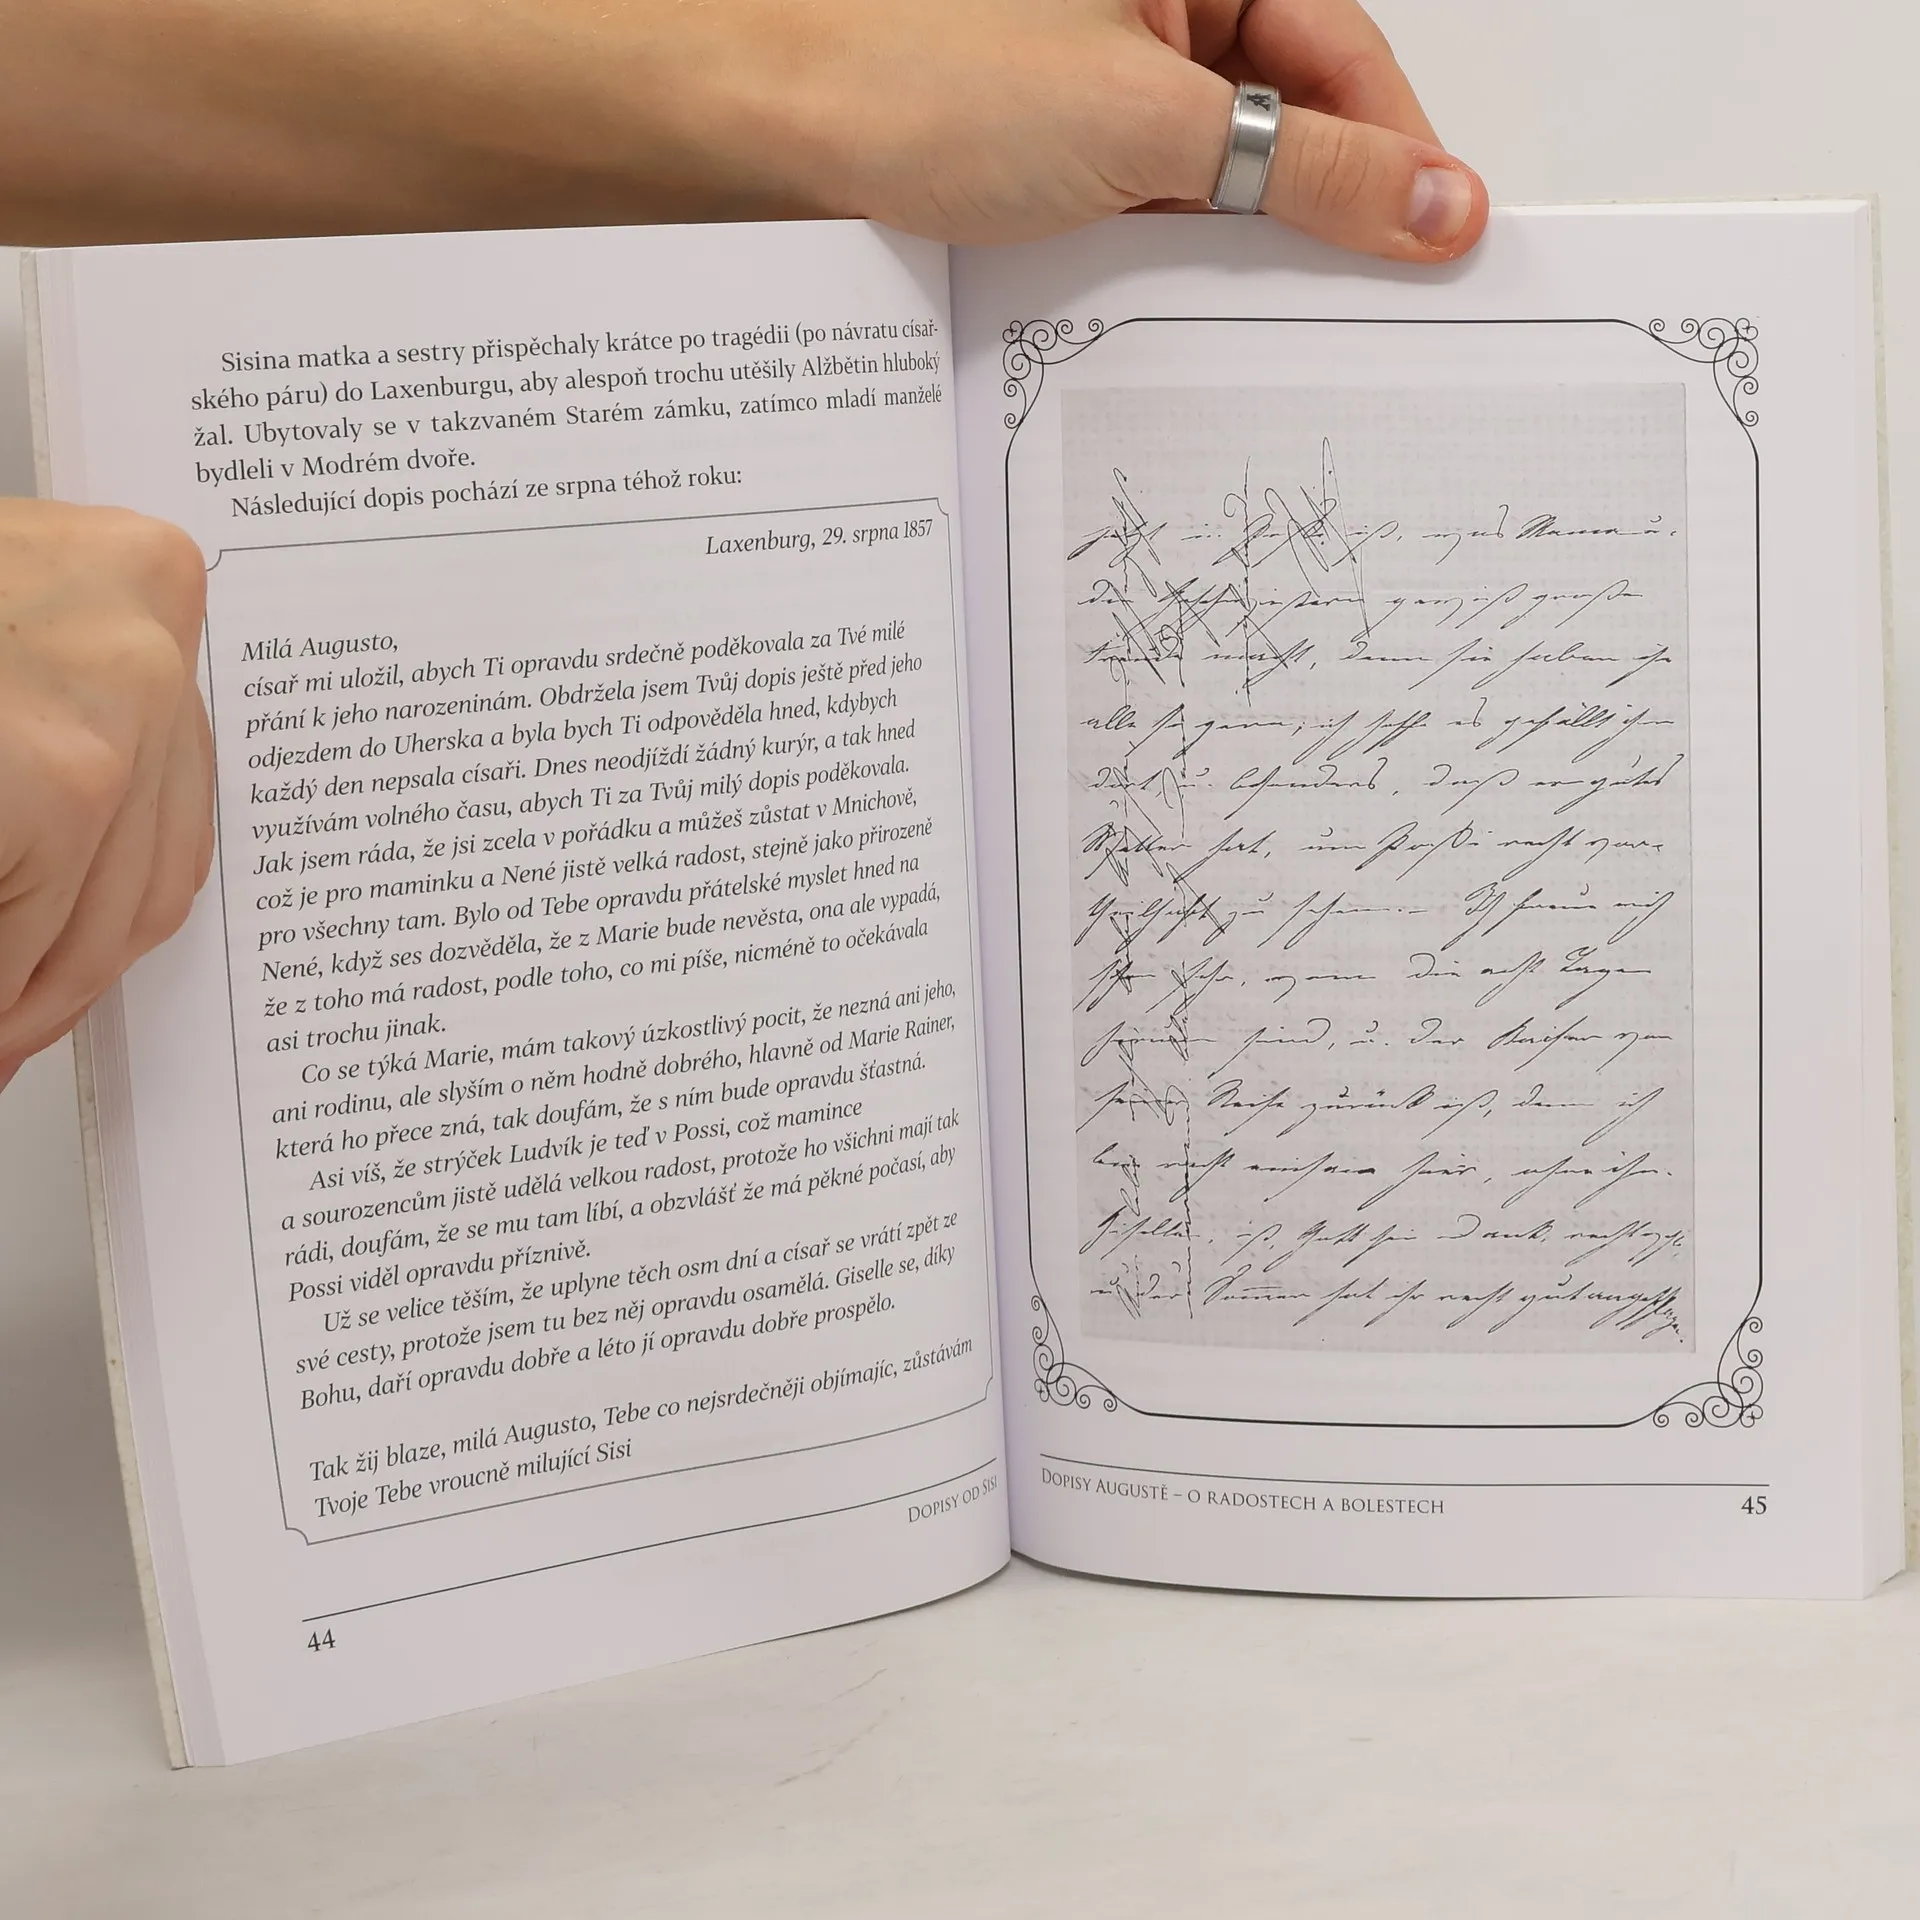 Sisina matka a sestry přispěchaly krátce po tragédii (po návratu císař-
ského páru) do Laxenburgu, aby alespoň trochu utěšily Alžbětin hluboký
žal. Ubytovaly se v takzvaném Starém zámku, zatímco mladí manželé
bydleli v Modrém dvoře.
Následující dopis pochází ze srpna téhož roku:
Laxenburg, 29. srpna 1857
Milá Augusto,
císař mi uložil, abych Ti opravdu srdečně poděkovala za Tvé milé
přání k jeho narozeninám. Obdržela jsem Tvůj dopis ještě před jeho
odjezdem do Uherska a byla bych Ti odpověděla hned, kdybych
každý den nepsala císaři. Dnes neodjíždí žádný kurýr, a tak hned
využívám volného času, abych Ti za Tvůj milý dopis poděkovala.
Jak jsem ráda, že jsi zcela v pořádku a můžeš zůstat v Mnichově,
což je pro maminku a Nené jistě velká radost, stejně jako přirozeně
pro všechny tam. Bylo od Tebe opravdu přátelské myslet hned na
Nené, když ses dozvěděla, že z Marie bude nevěsta, ona ale vypadá,
že z toho má radost, podle toho, co mi píše, nicméně to očekávala
asi trochu jinak.
Co se týká Marie, mám takový úzkostlivý pocit, že nezná ani jeho,
ani rodinu, ale slyším o něm hodně dobrého, hlavně od Marie Rainer,
která ho přece zná, tak doufám, že s ním bude opravdu šťastná.
Asi víš, že strýček Ludvík je teď v Possi, což mamince
a sourozencům jistě udělá velkou radost, protože ho všichni mají tak
rádi, doufám, že se mu tam líbí, a obzvlášť že má pěkné počasí, aby
Possi viděl opravdu příznivě.
Už se velice těším, že uplyne těch osm dní a císař se vrátí zpět ze
své cesty, protože jsem tu bez něj opravdu osamělá. Giselle se, díky
Bohu, daří opravdu dobře a léto jí opravdu dobře prospělo.
Tak žij blaze, milá Augusto, Tebe co nejsrdečněji objímajíc, zůstávám
Tvoje Tebe vroucně milující Sisi
DOPISY OD SISI
44
ist, was Mama u.
den Geschwistern gewiß große
Freude macht, denn sie haben ihn
alle so gern; ich hoffe es gefällt ihm
dort, u. besonders, daß er gutes
Wetter hat, um Possi recht vor-
theilhaft zu sehen. Ich freue mich
schon sehr, wenn die acht Tage
sind, u. der Kaiser von
seiner Reise zurück ist, denn ich
bin recht einsam hier, ohne ihn.
Gisella, ist, Gott sei Dank, recht wohl,
u. der Sommer hat ihr recht gut angeschlagen.
DOPISY AUGUSTĚ – O RADOSTECH A BOLESTECH
45